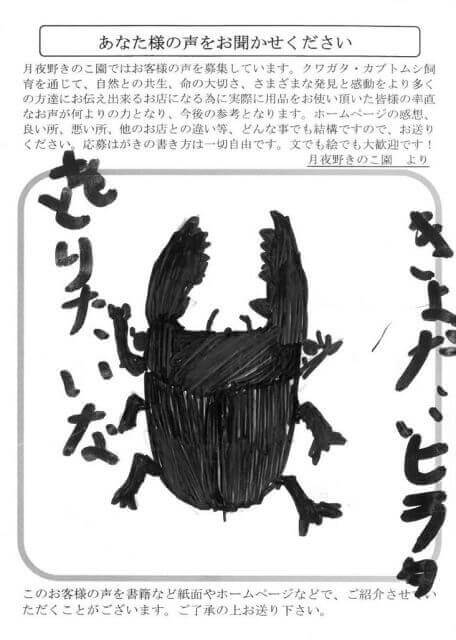 あなた様の声をお聞かせください
月夜野きのこ園ではお客様の声を募集しています。クワガタ・カブトムシ飼
育を通じて、自然との共生、命の大切さ、さまざまな発見と感動をより多く
の方達にお伝え出来るお店になる為に実際に用品をお使い頂いた皆様の率直
なお声が何よりの力となり、今後の参考となります。ホームページの感想、
良い所、悪い所、他のお店との違い等、どんな事でも結構ですので、お送り
ください。応募はがきの書き方は一切自由です。文でも絵でも大歓迎です!
月夜野きのこ園　より
きょだいヒラタ
をとりたいな
このお客様の声を書籍など紙面やホームページなどで、ご紹介させてい
ただくことがございます。ご了承の上お送り下さい。